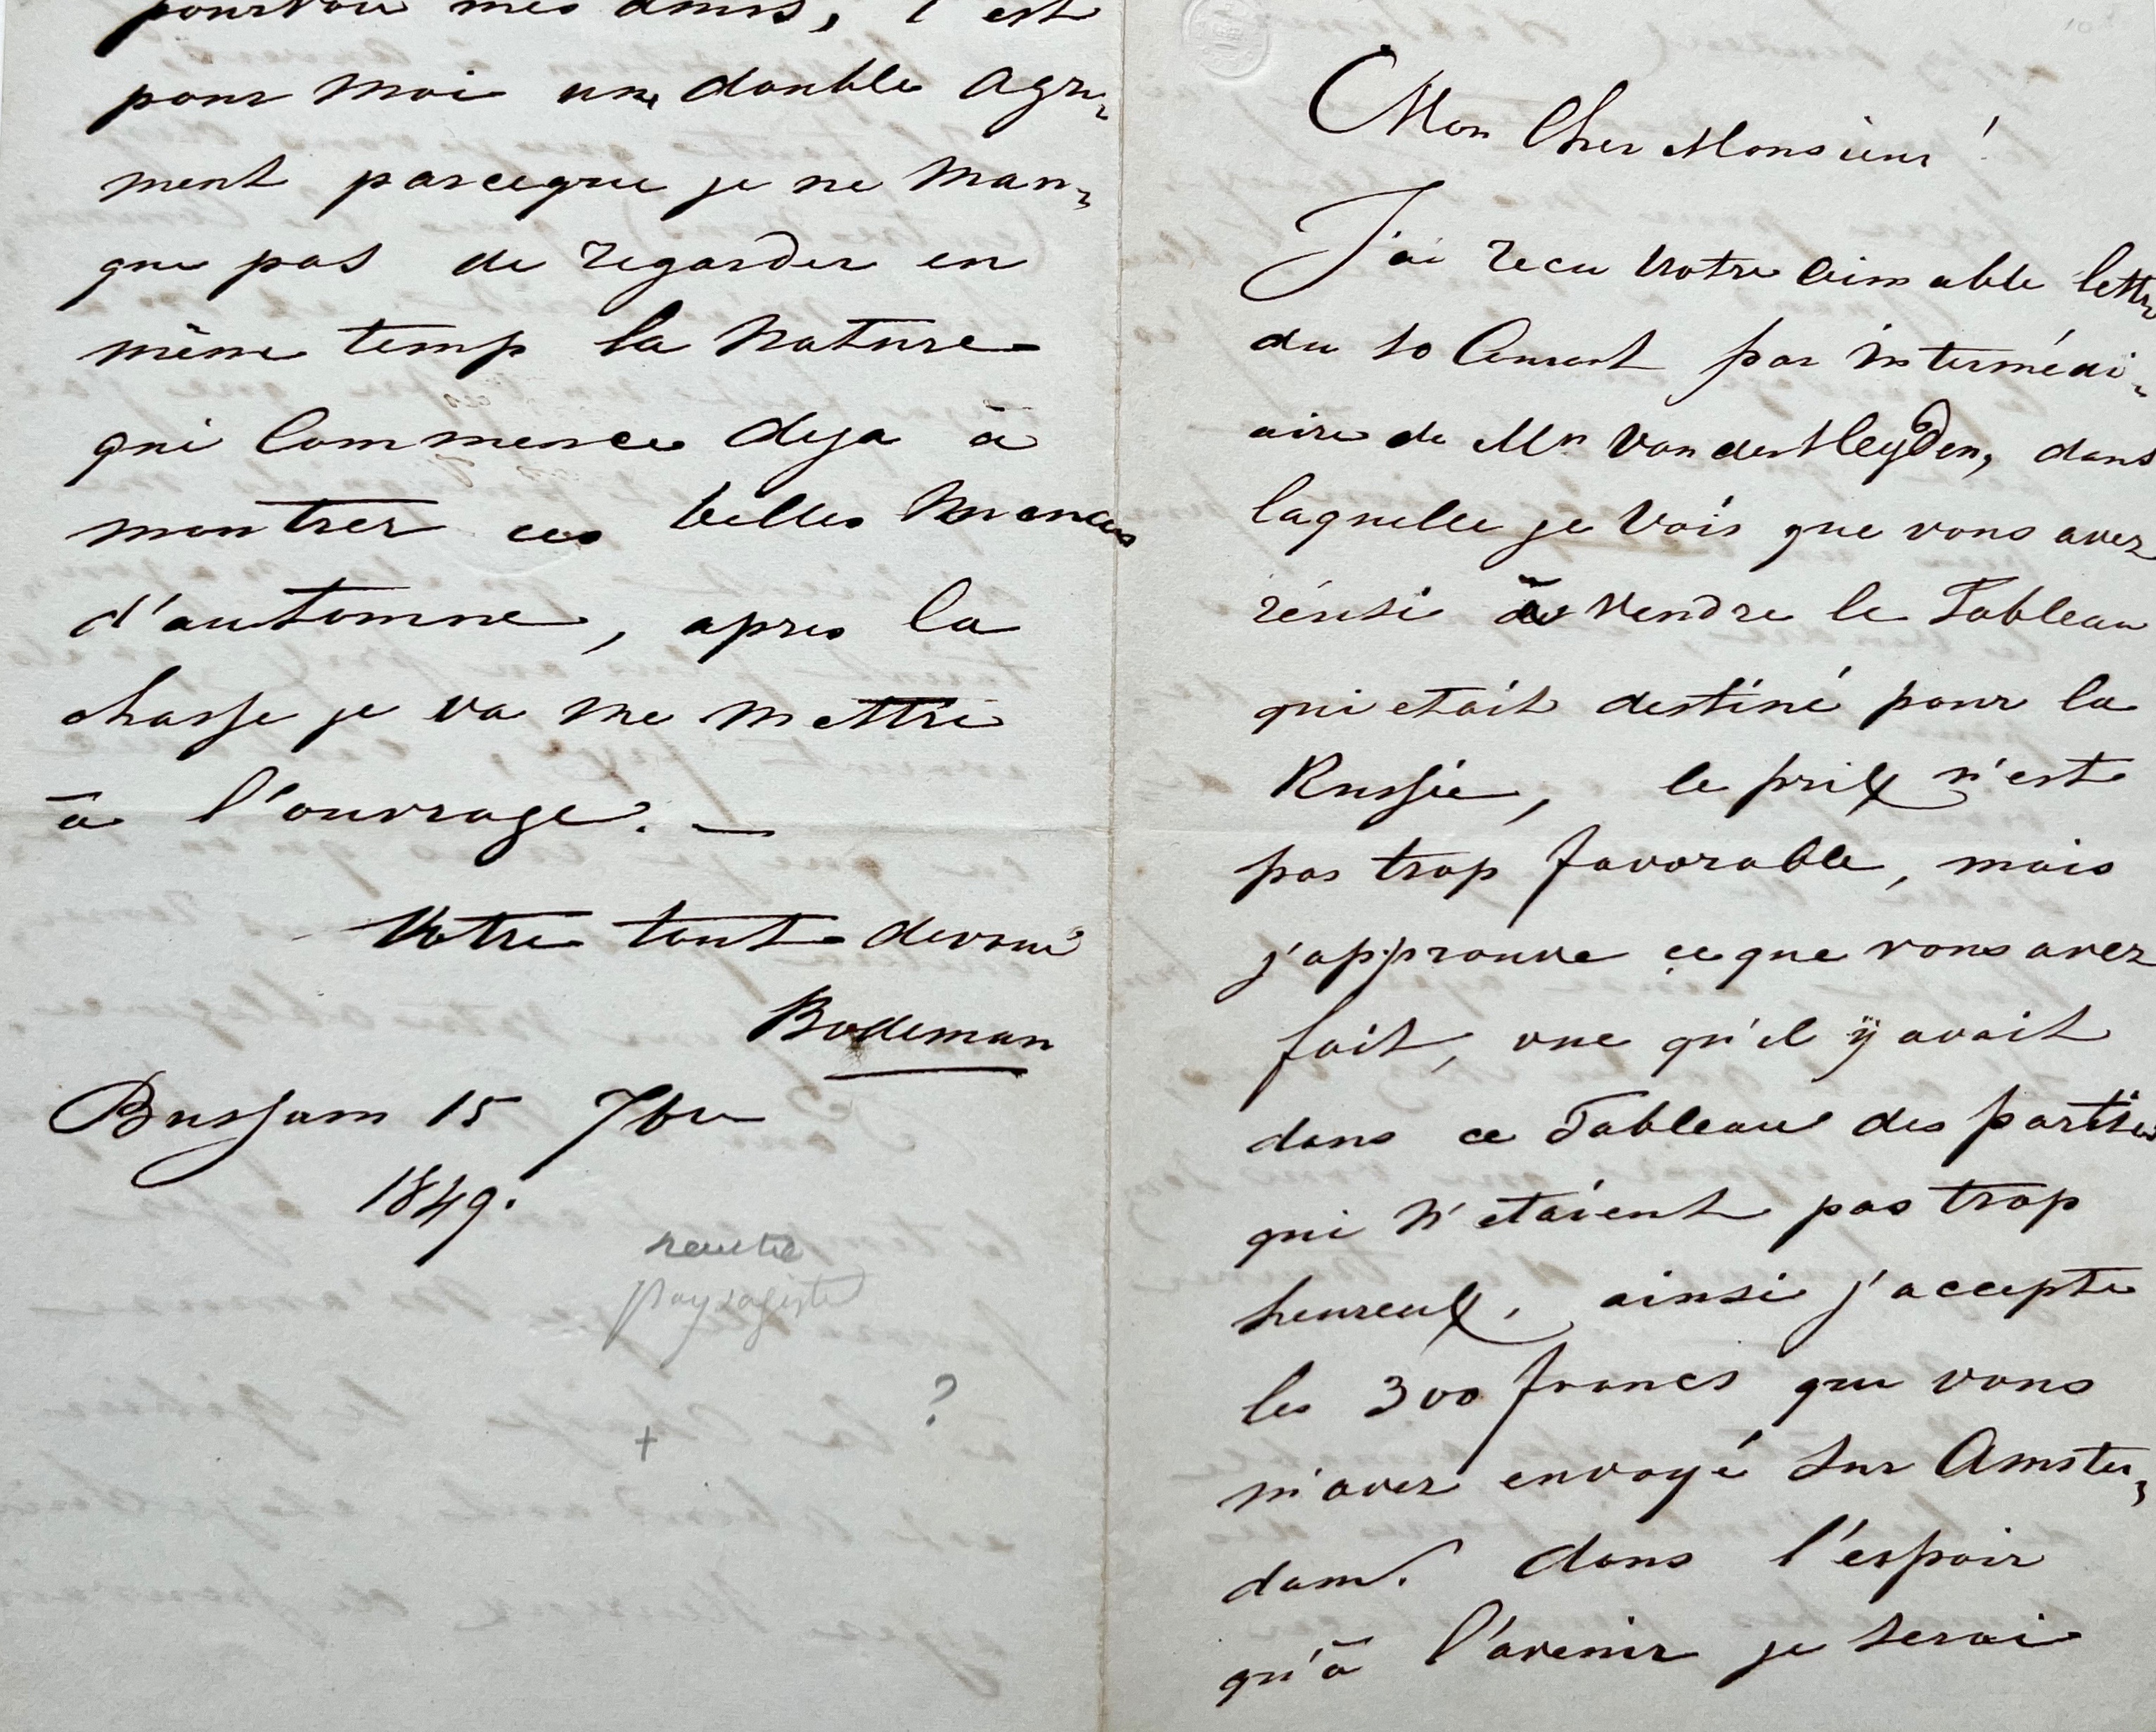 Mon Cher Monsieur!
J'ai recu Votre Aimable lettre
du 10 Courant par intermédi-
aire de Mr Van der Heyden, dans
laquelle je Vois que vous avez
réussi à Vendre le Tableau
qui etait destiné pour la
Russie, le prix n'est
pas trop favorable, mais
j'approuve ce que vous avez
fait, vue qu'il ÿ avait
dans ce Tableau des parties
qui N'etaient pas trop
heureux, ainsi j'accepte
les 300 francs que vous
m'avez envoyé sur Amster-
dam. dans l'espoir
qu'à l'avenir je serai
pourvoir mes amis, c'est
pour Moi une double Agre-
ment parceque je ne Man-
que pas de regarder en
même temp la Nature
qui Commence deja à
montrer ces belles Nuances
d'automne, apres la
chasse je va me mettre
à l'ouvrage. —
Votre tout devoué
Bodeman
Bussum 15 7bre
1849.
paysagiste
?
+